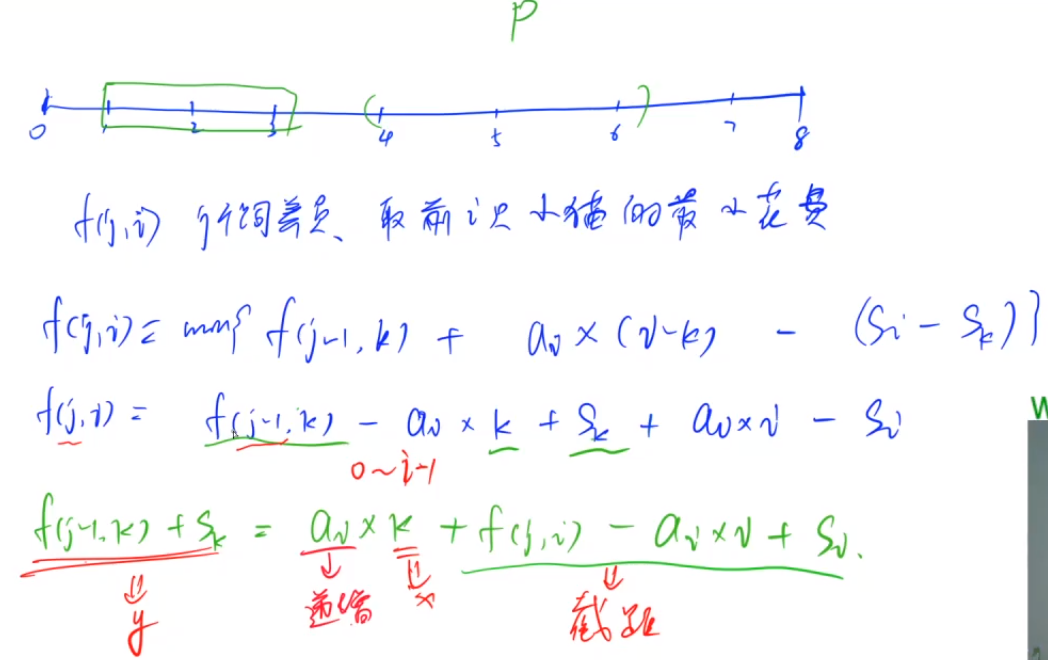 P
0 1 2 3 4 5 6 7 8
f(j,i) j个饲养员、取前i只小猫的最小花费
f(j,i)= min{ f(j-1,k) + ai×(i-k) - (Si-Sk)}
f(j,i) = f(j-1,k) - ai×k + Sk + ai×i - Si
0~i-1
f(j-1,k)+Sk = ai×k + f(j,i) - ai×i + Si.
y 递增 x 截距